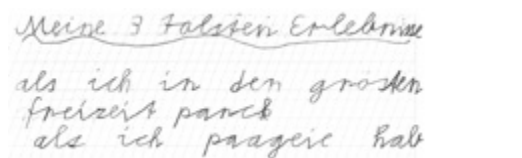 Meine 3 Tolsten Erlebnisse
als ich in den grösten
freizeit panck
als ich paageie hab